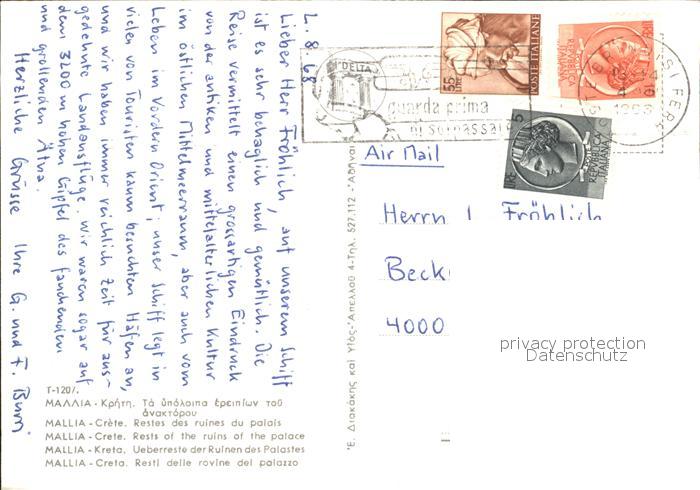 L. 8. 68
Lieber Herr Fröhlich, auf unserem Schiff
ist es sehr behaglich und gemütlich. Die
Reise vermittelt einen grossartigen Eindruck
von der antiken und mittelalterlichen Kultur
im östlichen Mittelmeerraum, aber auch vom
Leben im Vordern Orient; unser Schiff legt in
vielen von Touristen kaum besuchten Häfen an,
und wir haben immer reichlich Zeit für aus-
gedehnte Landausflüge. Wir waren sogar auf
dem 3200 m hohen Gipfel des fauchenden
und grollenden Ätna.
Herzliche Grüsse Ihre G. und F. Burri
T-120/.
ΜΑΛΛΙΑ - Κρήτη. Τὰ ὑπόλοιπα ἐρειπίων τοῦ
ἀνακτόρου
MALLIA - Crète. Restes des ruines du palais
MALLIA - Crete. Rests of the ruins of the palace
MALLIA - Kreta. Ueberreste der Ruinen des Palastes
MALLIA - Creta. Resti delle rovine del palazzo
Ἐ. Διακάκης καὶ Υἱός - Ἀπελλοῦ 4 - Τηλ. 527.112 - Ἀθῆναι
DELTA
guarda prima
di sorpassare
55 LIRE
POSTE ITALIANE
LIRE 5
POSTE REPUBBLICA ITALIANA
1968
Air Mail
Herrn Fröhlich
Beck
4000
privacy protection
Datenschutz